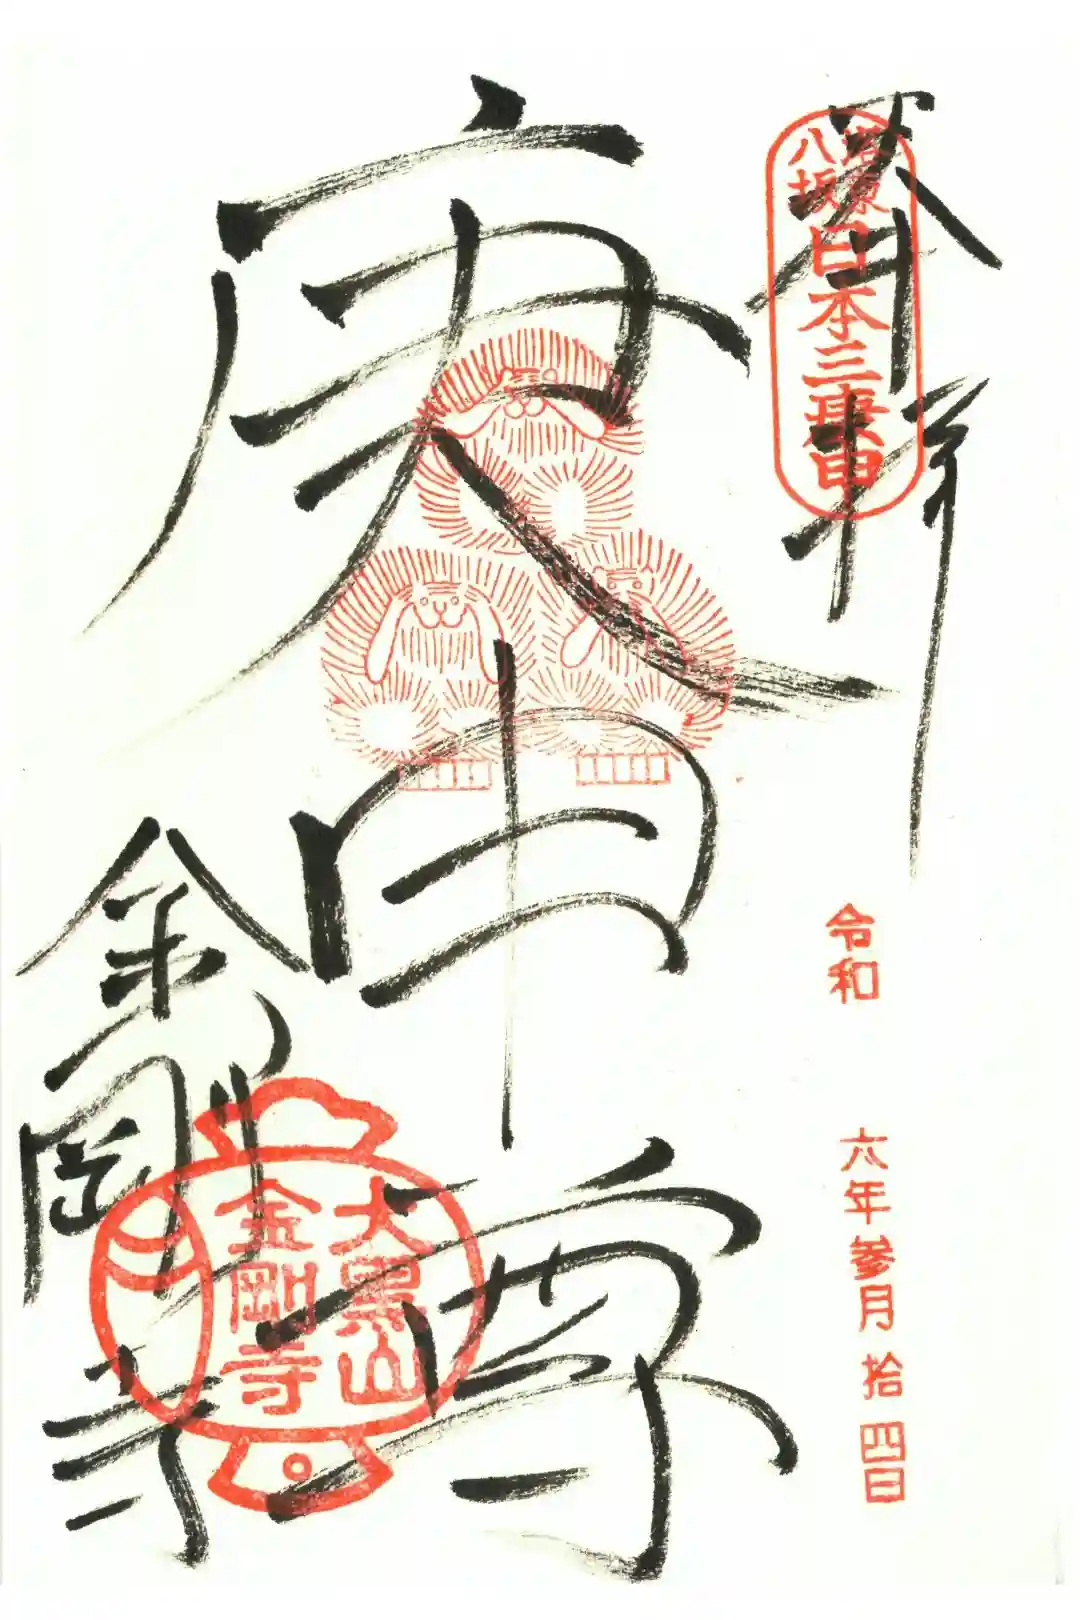 奉拝
洛東
八坂
日本三庚申
令和六年参月拾四日
庚申尊
大黒山
金剛寺
金剛寺